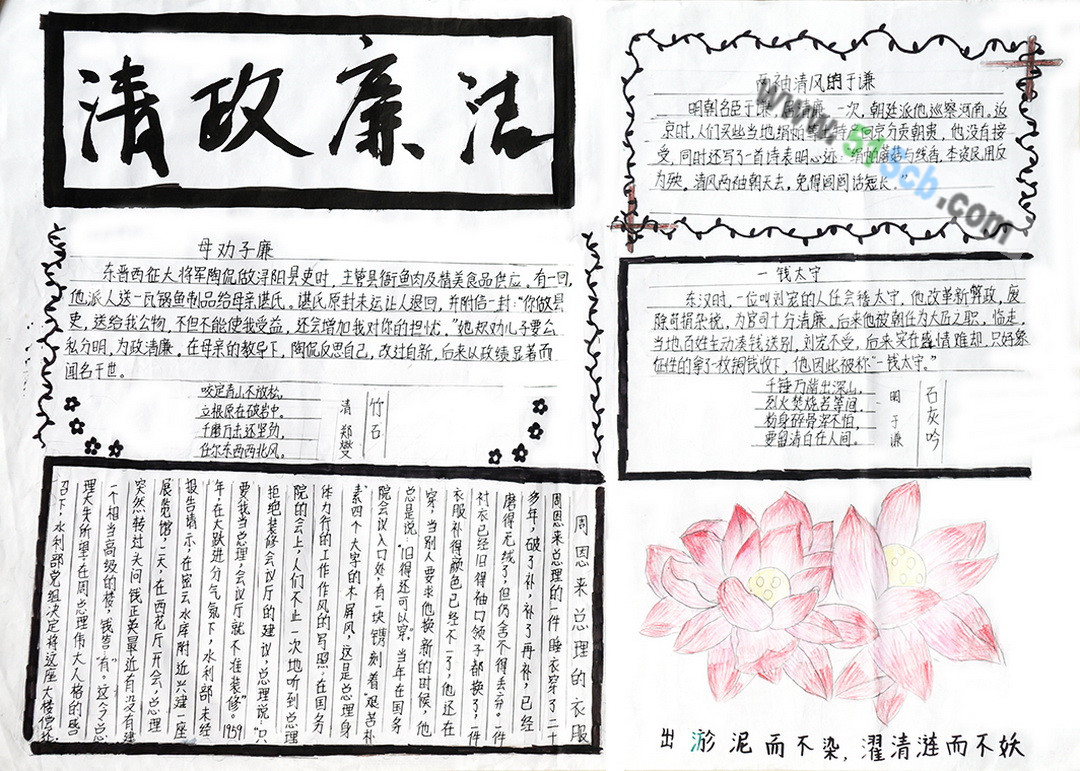 清政廉洁
母劝子廉
东晋西征大将军陶侃做浔阳县吏时，主管县衙鱼肉及精美食品供应。有一回，
他派人送一瓦锅鱼制品给母亲谌氏。谌氏原封未运让人退回，并附信一封："你做县
吏，送给我公物，不但不能使我受益，还会增加我对你的担忧，"她规劝儿子要公
私分明，为政清廉，在母亲的教导下，陶侃反思自己，改过自新，后来以政绩显著而
闻名于世。
咬定青山不放松，
立根原在破岩中。
千磨万击还坚劲，
任尔东西西北风。
清 郑燮
竹石
周恩来总理的衣服
周恩来总理的一件睡衣穿了二十
多年，破了补，补了再补，已经
磨得无绒了，但仍舍不得丢弃。一件
衬衣已经旧得袖口领子都换了，一件
衣服补得颜色已经不一了，他还在
穿，当别人要求他换新的时候，他
总是说："旧得还可以穿。"当年在国务
院会议入口处，有一块镌刻着"艰苦朴
素"四个大字的木屏风，这是总理身
体力行的工作作风的写照。在国务
院的会上，人们不止一次地听到总理
拒绝装修会议厅的建议，总理说："只
要我当总理，会议厅就不准装修"。1959
年，在大跃进分气氛下，水利部未经
报告请示，在密云水库附近兴建一座
展览馆，一天，在西花厅开会，总理
突然转过头问钱正英最近有没有建
一个相当高级的楼，钱答"有"。这令总
理大失所望，在周总理伟大人格的感
召下，水利部党组决定将这座大楼偿还
两袖清风的于谦
明朝名臣于谦 居清廉 一次，朝廷派他巡察河南。返
京时，人们买些当地绢帕等土特产回京分贡朝贵，他没有接
受，同时还写了一首诗表明心迹："绢帕蘑菇与线香，本资民用反
为殃，清风两袖朝天去，免得阎阎话短长。"
www.518cb.com
一钱太守
东汉时，一位叫刘宠的人任会稽太守，他改革新弊政，废
除苛捐杂税，为官司十分清廉。后来他被朝任为大匹之职，临走，
当地百姓生动凑钱送别，刘宠不受。后来实在盛情难却，只好象
征性的拿了一枚铜钱收下，他因此被称"一钱太守。"
千锤万凿出深山，
烈火焚烧若等闲，
粉身碎骨浑不怕，
要留清白在人间。
明 于谦
石灰吟
出淤泥而不染，濯清涟而不妖